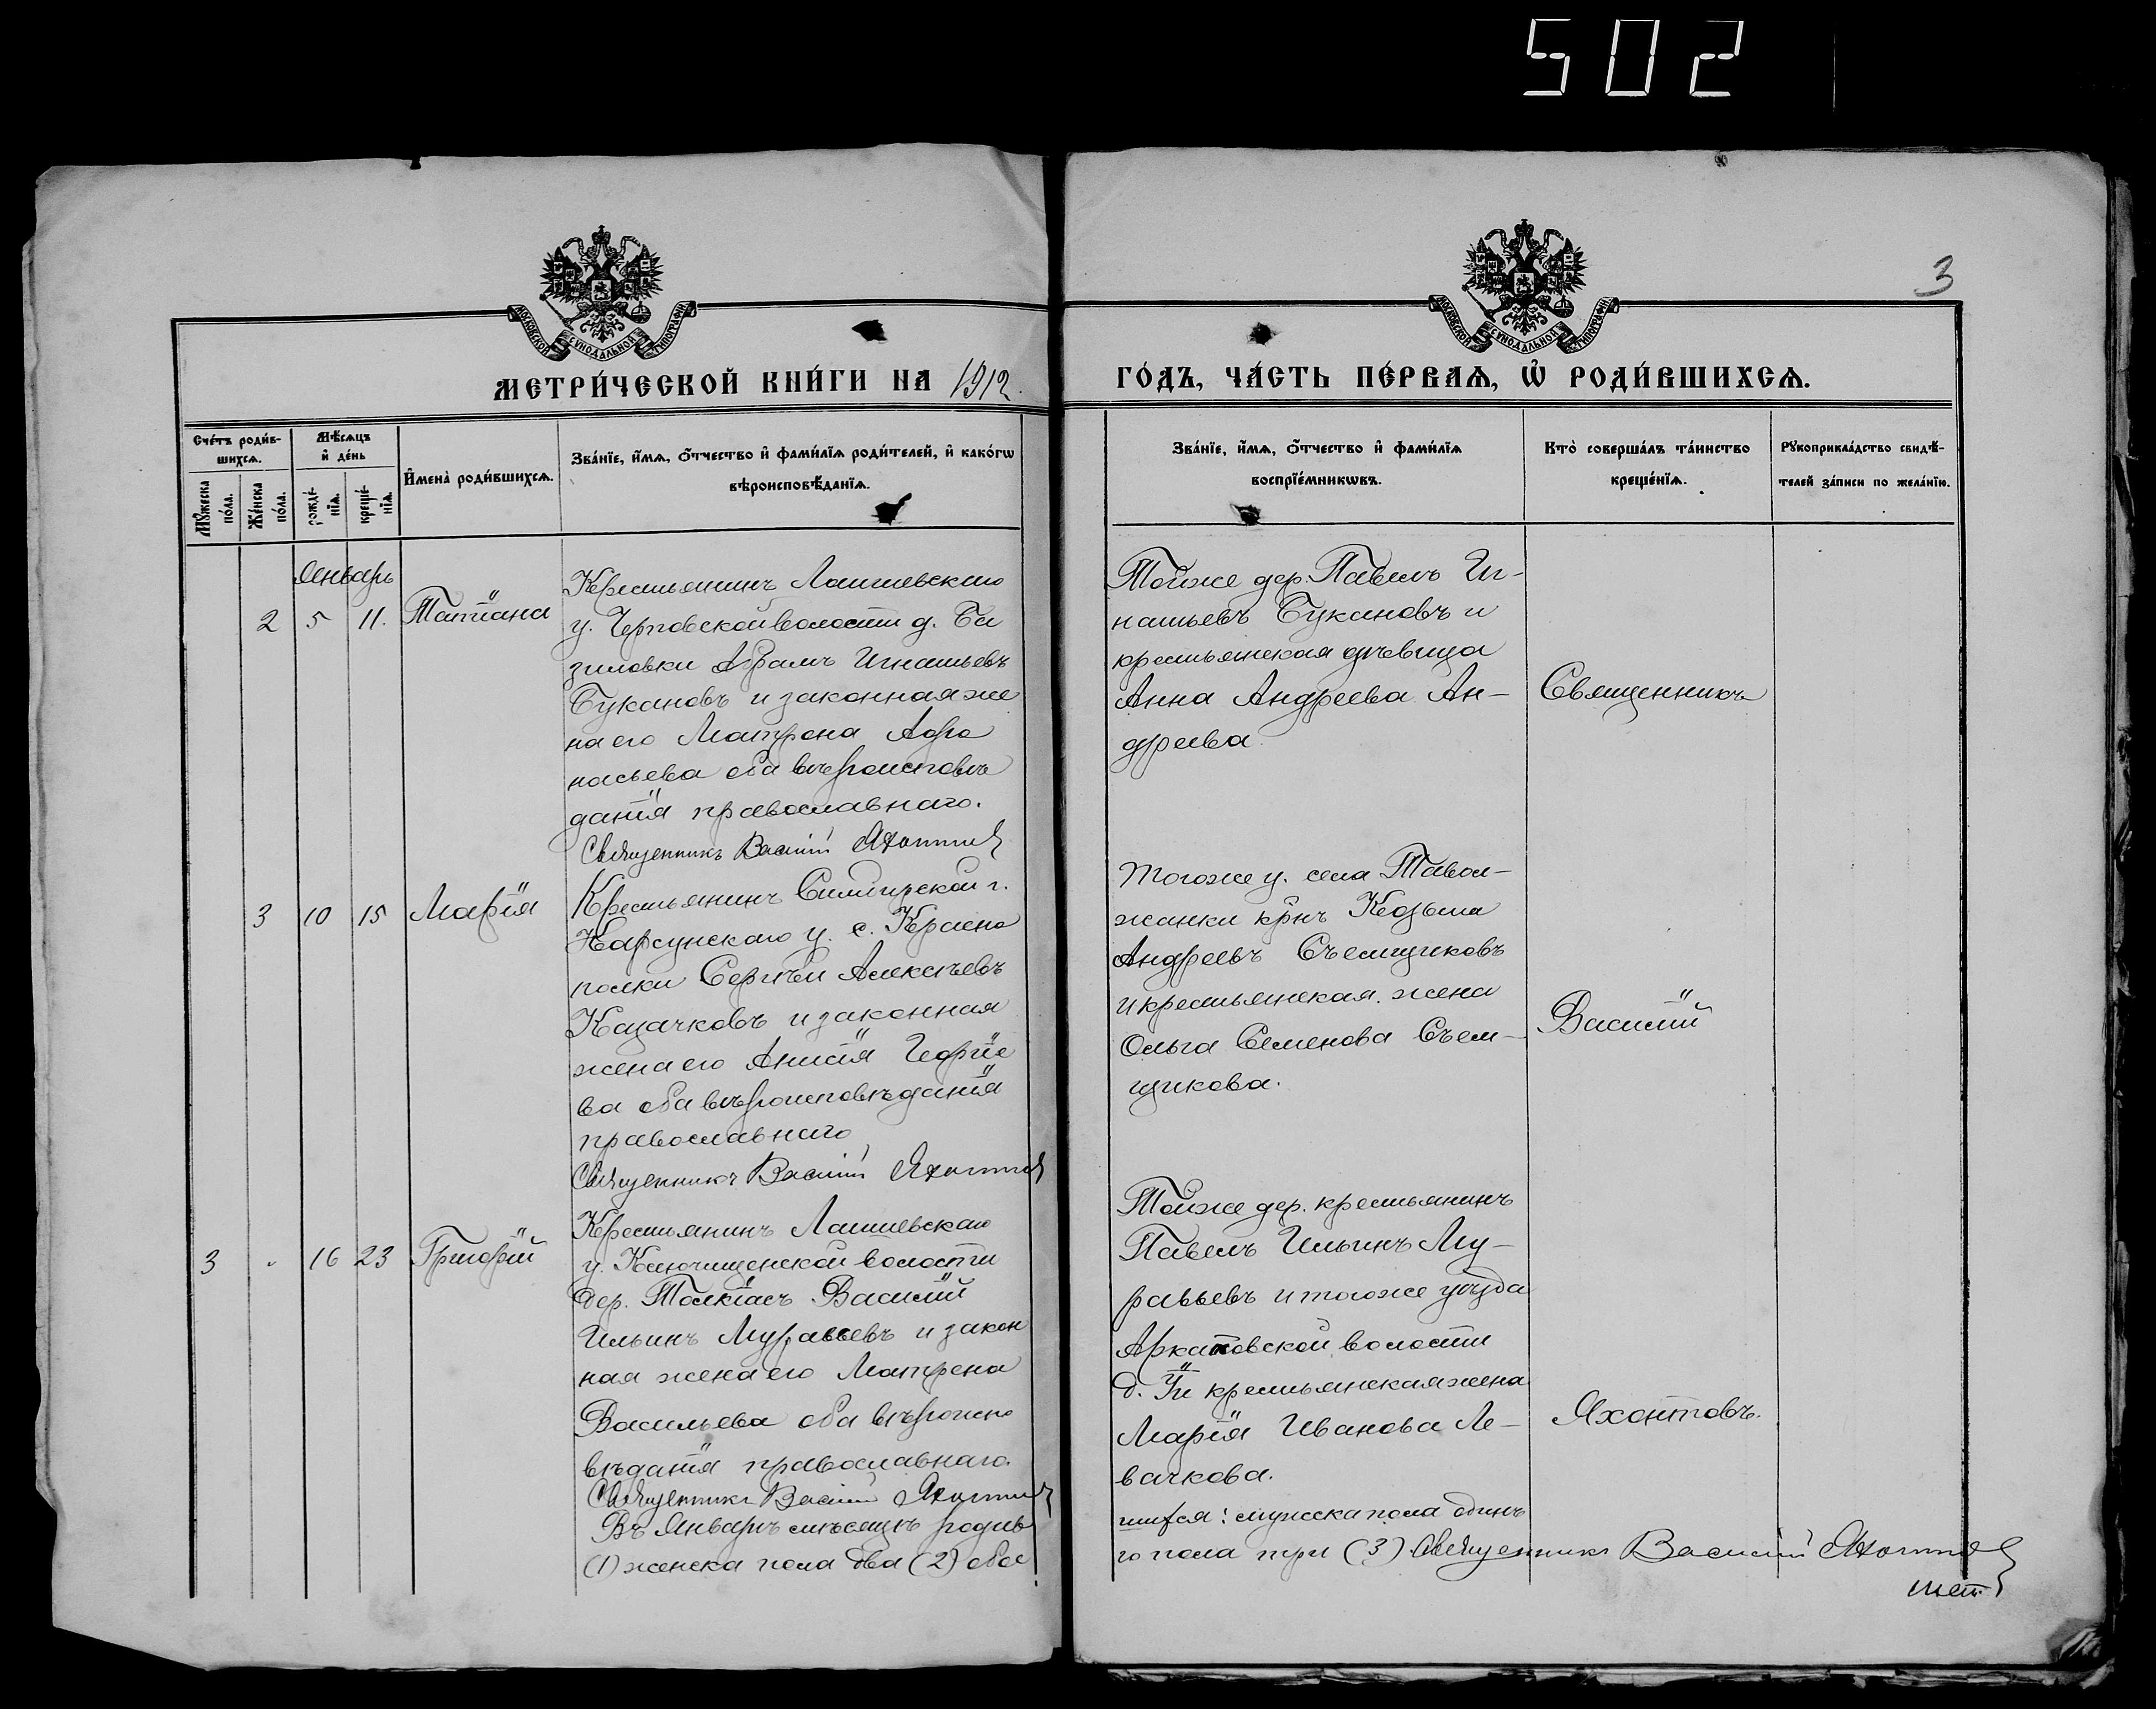 502
3
МОСКОВСКОЙ СУНОДАЛЬНОЙ ТИПОГРАФІИ
МОСКОВСКОЙ СУНОДАЛЬНОЙ ТИПОГРАФІИ
МЕТРИ́ЧЕСКОЙ КНИ́ГИ НА 1912.
ГО́ДЪ, ЧА́СТЬ ПЕ́РВАѦ, Ѡ҆ РОДИ́ВШИХСѦ.
Сче́тъ роди́в-
шихсѧ.
Мѣ́сѧцъ
и҆ де́нь
И҆мена̀ роди́вшихсѧ.
Зва́нїе, и҆́мѧ, ѻ҆́тчество и҆ фами́лїѧ роди́телей, и҆ како́гѡ
вѣроисповѣ́данїѧ.
Мꙋ́жеска
по́ла.
Же́нска
по́ла.
рожде́-
нїѧ.
креще́-
нїѧ.
Зва́нїе, и҆́мѧ, ѻ҆́тчество и҆ фами́лїѧ
воспрїе́мникѡвъ.
Кто̀ соверша́лъ та́инство
креще́нїѧ.
Рꙋкоприкла́дство свидѣ́-
телей за́писи по жела́нїю.
Январь
2 5 11. Татіана
Крестьянинъ Лаишевскаго
у. Черповской волости д. Ба
зиловки Абрамъ Игнатьевъ
Букановъ и законная же
на его Матрона Афа
насьева оба вѣроисповѣ
данія православнаго.
Священникъ Василій Яхонтовъ
Тойже дер. Павелъ Иг-
натьевъ Букановъ и
крестьянская дѣвица
Анна Андреева Ан-
дреева
Священникъ
3 10 15 Марія
Крестьянинъ Симбирской г.
Карсунскаго у. с. Красно
полки Сергѣй Алексѣевъ
Казачковъ и законная
жена его Анисія Георгіе
ва оба вѣроисповѣданія
православнаго
Священникъ Василій Яхонтовъ
Тогоже у. села Тавол-
жанки крнъ Козьма
Андреевъ Съемщиковъ
и крестьянская жена
Ольга Семенова Съем-
щикова.
Василій
3 " 16 23 Григорій
Крестьянинъ Лаишевскаго
у. Ключищенской волости
дер. Полкіасъ Василій
Ильинъ Муравьевъ и закон
ная жена его Матрена
Васильева оба вѣроиспо
вѣданія православнаго.
Священникъ Василій Яхонтовъ
Тойже дер. крестьянинъ
Павелъ Ильинъ Му-
равьевъ и тогоже уѣзда
Аркатовской волости
д. крестьянская жена
Марія Иванова Ле-
вачкова.
Яхонтовъ.
Въ Январѣ мѣсяцѣ родив
шихся: мужска пола одинъ
(1) женска пола два (2) обое
го пола три (3) Священникъ Василій Яхонтовъ